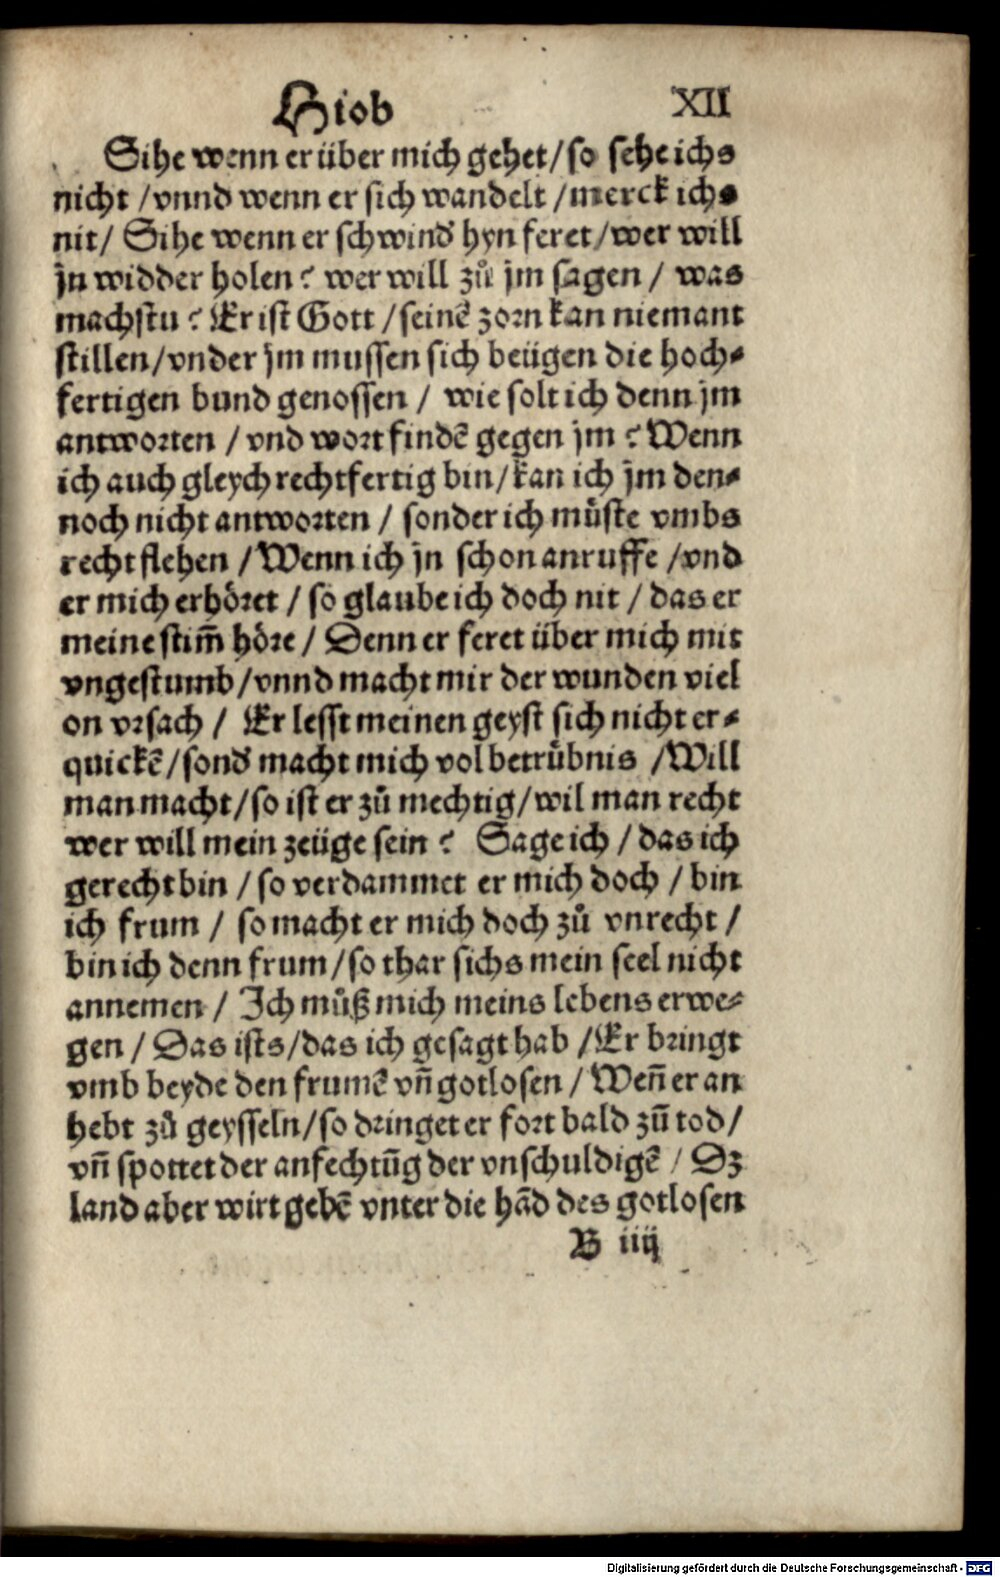 Hiob XII
Sihe wenn er über mich gehet/ so sehe ichs
nicht / vnnd wenn er sich wandelt / merck ichs
nit/ Sihe wenn er schwind hyn feret/ wer will
jn widder holen? wer will zů jm sagen / was
machstu? Er ist Gott / seinẽ zorn kan niemant
stillen/ vnder jm mussen sich beügen die hoch⸗
fertigen bund genossen / wie solt ich denn jm
antworten / vnd wort findẽ gegen jm? Wenn
ich auch gleych rechtfertig bin/ kan ich jm den⸗
noch nicht antworten / sonder ich můste vmbs
recht flehen / Wenn ich jn schon anruffe / vnd
er mich erhöret / so glaube ich doch nit / das er
meine stim̃ höre / Denn er feret über mich mit
vngestumb/ vnnd macht mir der wunden viel
on vrsach / Er lesst meinen geyst sich nicht er⸗
quickẽ/ sond' macht mich vol betrůbnis / Will
man macht/ so ist er zů mechtig/ wil man recht
wer will mein zeüge sein? Sage ich / das ich
gerecht bin / so verdammet er mich doch / bin
ich frum / so macht er mich doch zů vnrecht /
bin ich denn frum/ so thar sichs mein seel nicht
annemen / Ich můß mich meins lebens erwe⸗
gen / Das ists/ das ich gesagt hab / Er bringt
vmb beyde den frumẽ vñ gotlosen / Weñ er an
hebt zů geysseln/ so dringet er fort bald zů tod/
vñ spottet der anfechtũg der vnschuldigẽ / Dz
land aber wirt gebẽ vnter die hãd des gotlosen
B iiij
Digitalisierung gefördert durch die Deutsche Forschungsgemeinschaft - DFG